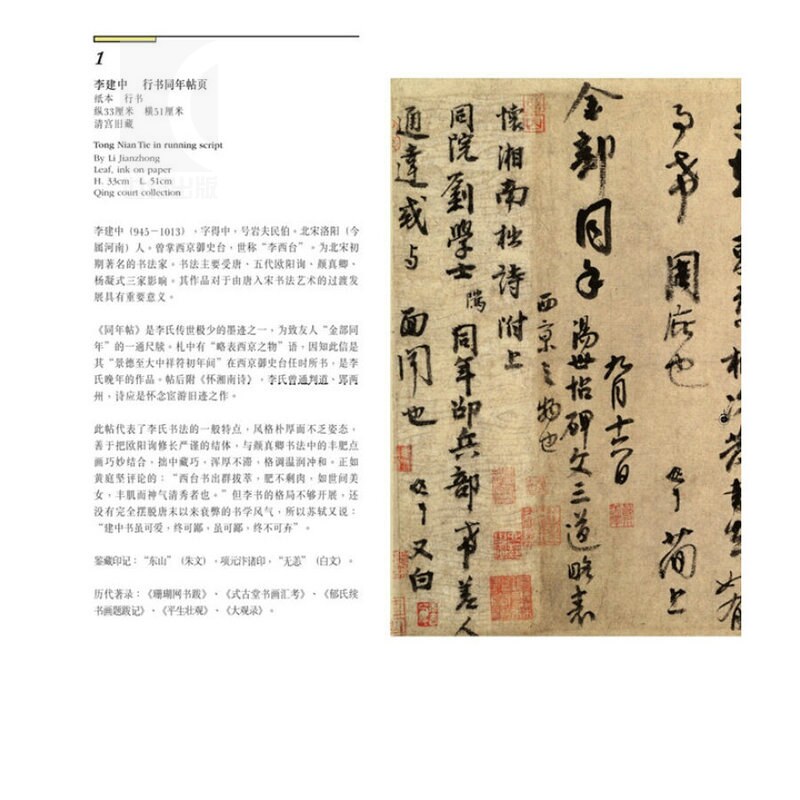 1
李建中 行书同年帖页
纸本 行书
纵33厘米 横51厘米
清宫旧藏
Tong Nian Tie in running script
By Li Jianzhong
Leaf, ink on paper
H. 33cm L. 51cm
Qing court collection
李建中(945－1013),字得中,号岩夫民伯。北宋洛阳(今
属河南)人。曾掌西京御史台,世称“李西台”。为北宋初
期著名的书法家。书法主要受唐、五代欧阳询、颜真卿、
杨凝式三家影响。其作品对于由唐入宋书法艺术的过渡发
展具有重要意义。
《同年帖》是李氏传世极少的墨迹之一,为致友人“金部同
年”的一通尺牍。札中有“略表西京之物”语,因知此信是
其“景德至大中祥符初年间”在西京御史台任时所书,是李
氏晚年的作品。帖后附《怀湘南诗》,李氏曾通判道、郢两
州,诗应是怀念宦游旧迹之作。
此帖代表了李氏书法的一般特点,风格朴厚而不乏姿态,
善于把欧阳询修长严谨的结体,与颜真卿书法中的丰肥点
画巧妙结合,拙中藏巧,浑厚不滞,格调温润冲和。正如
黄庭坚评论的:“西台书出群拔萃,肥不剩肉,如世间美
女,丰肌而神气清秀者也。”但李书的格局不够开展,还
没有完全摆脱唐末以来衰弊的书学风气,所以苏轼又说:
“建中书虽可爱,终可鄙,虽可鄙,终不可弃”。
鉴藏印记:“东山”(朱文),项元汴诸印,“无恙”(白文)。
历代著录:《珊瑚网书跋》、《式古堂书画汇考》、《郁氏续
书画题跋记》、《平生壮观》、《大观录》。
可希 周庇也 简上
金部同年
九月十六日
湯世怗碑文三道略表
西京之物也
懷湘南拙詩附上
同院劉學士 同年邵兵部希差人
通達或与 面聞也 又白